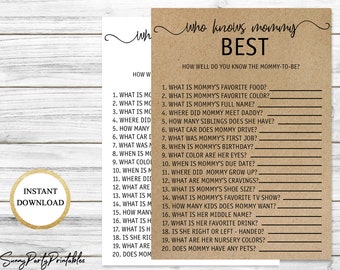 who knows mommy
BEST
HOW WELL DO YOU KNOW THE MOMMY-TO-BE?
1. WHAT IS MOMMY'S FAVORITE FOOD?
2. WHAT IS MOMMY'S FAVORITE COLOR?
3. WHAT IS MOMMY'S FULL NAME?
4. WHERE DID MOMMY MEET DADDY?
5. HOW MANY SIBLINGS DOES SHE HAVE?
6. WHAT CAR DOES MOMMY DRIVE?
7. WHAT WAS MOMMY'S FIRST JOB?
8. WHEN IS MOMMY'S BIRTHDAY?
9. WHAT COLOR ARE HER EYES?
10. WHEN IS MOMMY'S DUE DATE?
11. WHERE DID MOMMY GROW UP?
12. WHAT ARE MOMMY'S CRAVINGS?
13. WHAT IS MOMMY'S SHOE SIZE?
14. WHAT IS MOMMY'S FAVORITE TV SHOW?
15. HOW MANY KIDS DOES MOMMY WANT?
16. WHAT IS HER MIDDLE NAME?
17. WHAT IS HER FAVORITE DRINK?
18. IS SHE RIGHT OR LEFT - HANDED?
19. WHAT ARE HER NURSERY COLORS?
20. DOES MOMMY HAVE ANY PETS?
who kn
HOW WELL
1. WHAT IS MOMM
2. WHAT IS MOM
3. WHAT IS MOM
4. WHERE DID M
5. HOW MANY SI
6. WHAT CAR DO
7. WHAT WAS MO
8. WHEN IS MOM
9. WHAT COLOR
10. WHEN IS MO
11. WHERE DID
12. WHAT ARE M
13. WHAT IS MO
14. WHAT IS MO
15. HOW MANY
16. WHAT IS HE
17. WHAT IS HE
18. IS SHE RIG
19. WHAT ARE H
20. DOES MOM
INSTANT
DOWNLOAD
SunnyPartyPrintables